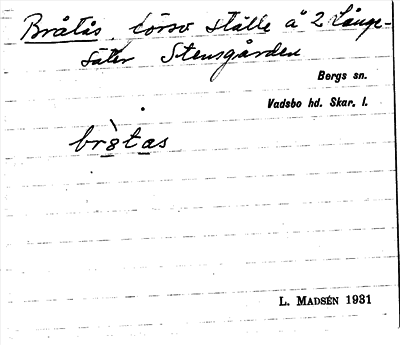 Bråtås, torso ställe å 2 Långe-
säter Stensgården
Bergs sn.
Vadsbo hd. Skar. l.
bròtas
L. MADSÉN 1931